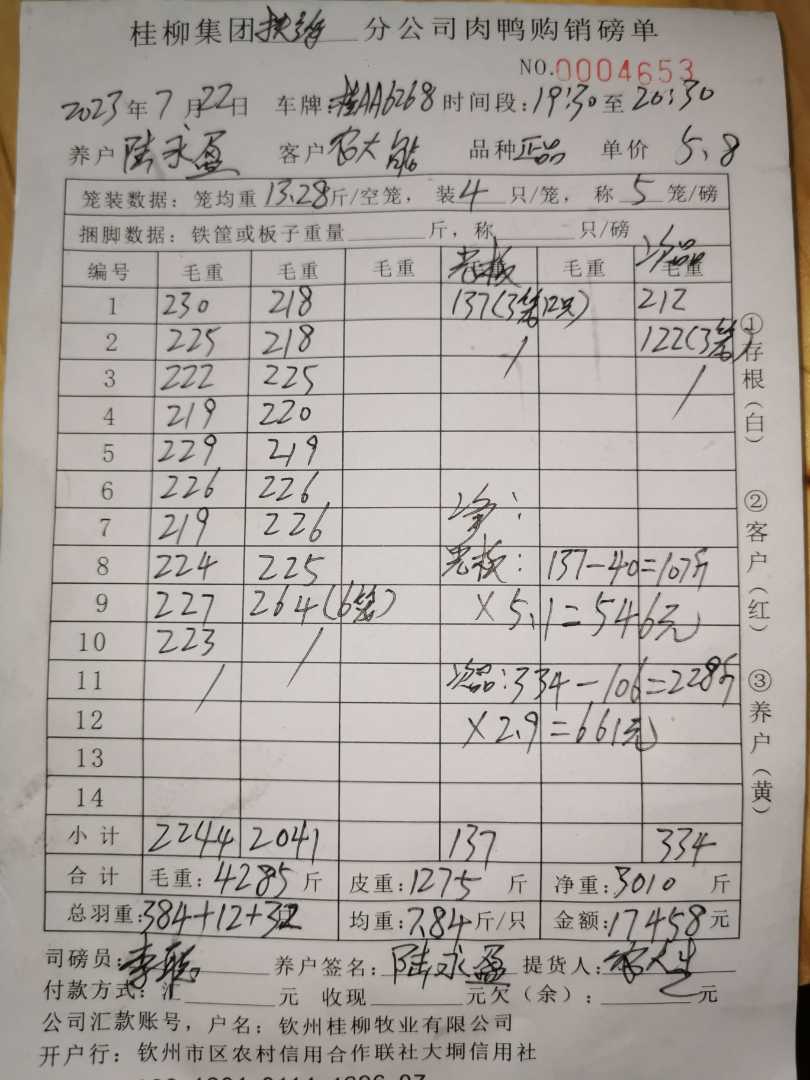 桂柳集团扶绥分公司肉鸭购销磅单
NO.0004653
2023年7月22日 车牌:桂AA6268 时间段:19:30至20:30
养户 陆永盈 客户 农大 品种 正品 单价 5.8
笼装数据：笼均重13.28斤/空笼，装4只/笼，称5笼/磅
捆脚数据：铁筐或板子重量 斤，称 只/磅
编号 毛重 毛重 毛重 老板 毛重 次品 毛重
1 230 218 137(3笼12只) 212
2 225 218 / 122(3笼)
3 222 225 /
4 219 220
5 229 219
6 226 226
7 219 226
8 224 225 老板：137-40=107斤
9 227 264(6笼) ×5.1=546元
10 223 /
11 / 次品:334-106=228斤
12 ×2.9=661元
13
14
小计 2244 2041 137 334
合计 毛重:4285斤 皮重:1275斤 净重:3010斤
总羽重:384+12+32 均重:7.84斤/只 金额:17458元
司磅员: 李 养户签名:陆永盈 提货人:
付款方式：汇 元 收现 元欠（余）： 元
公司汇款账号，户名：钦州桂柳牧业有限公司
开户行：钦州市区农村信用合作联社大垌信用社
①存根（白）
②客户（红）
③养户（黄）